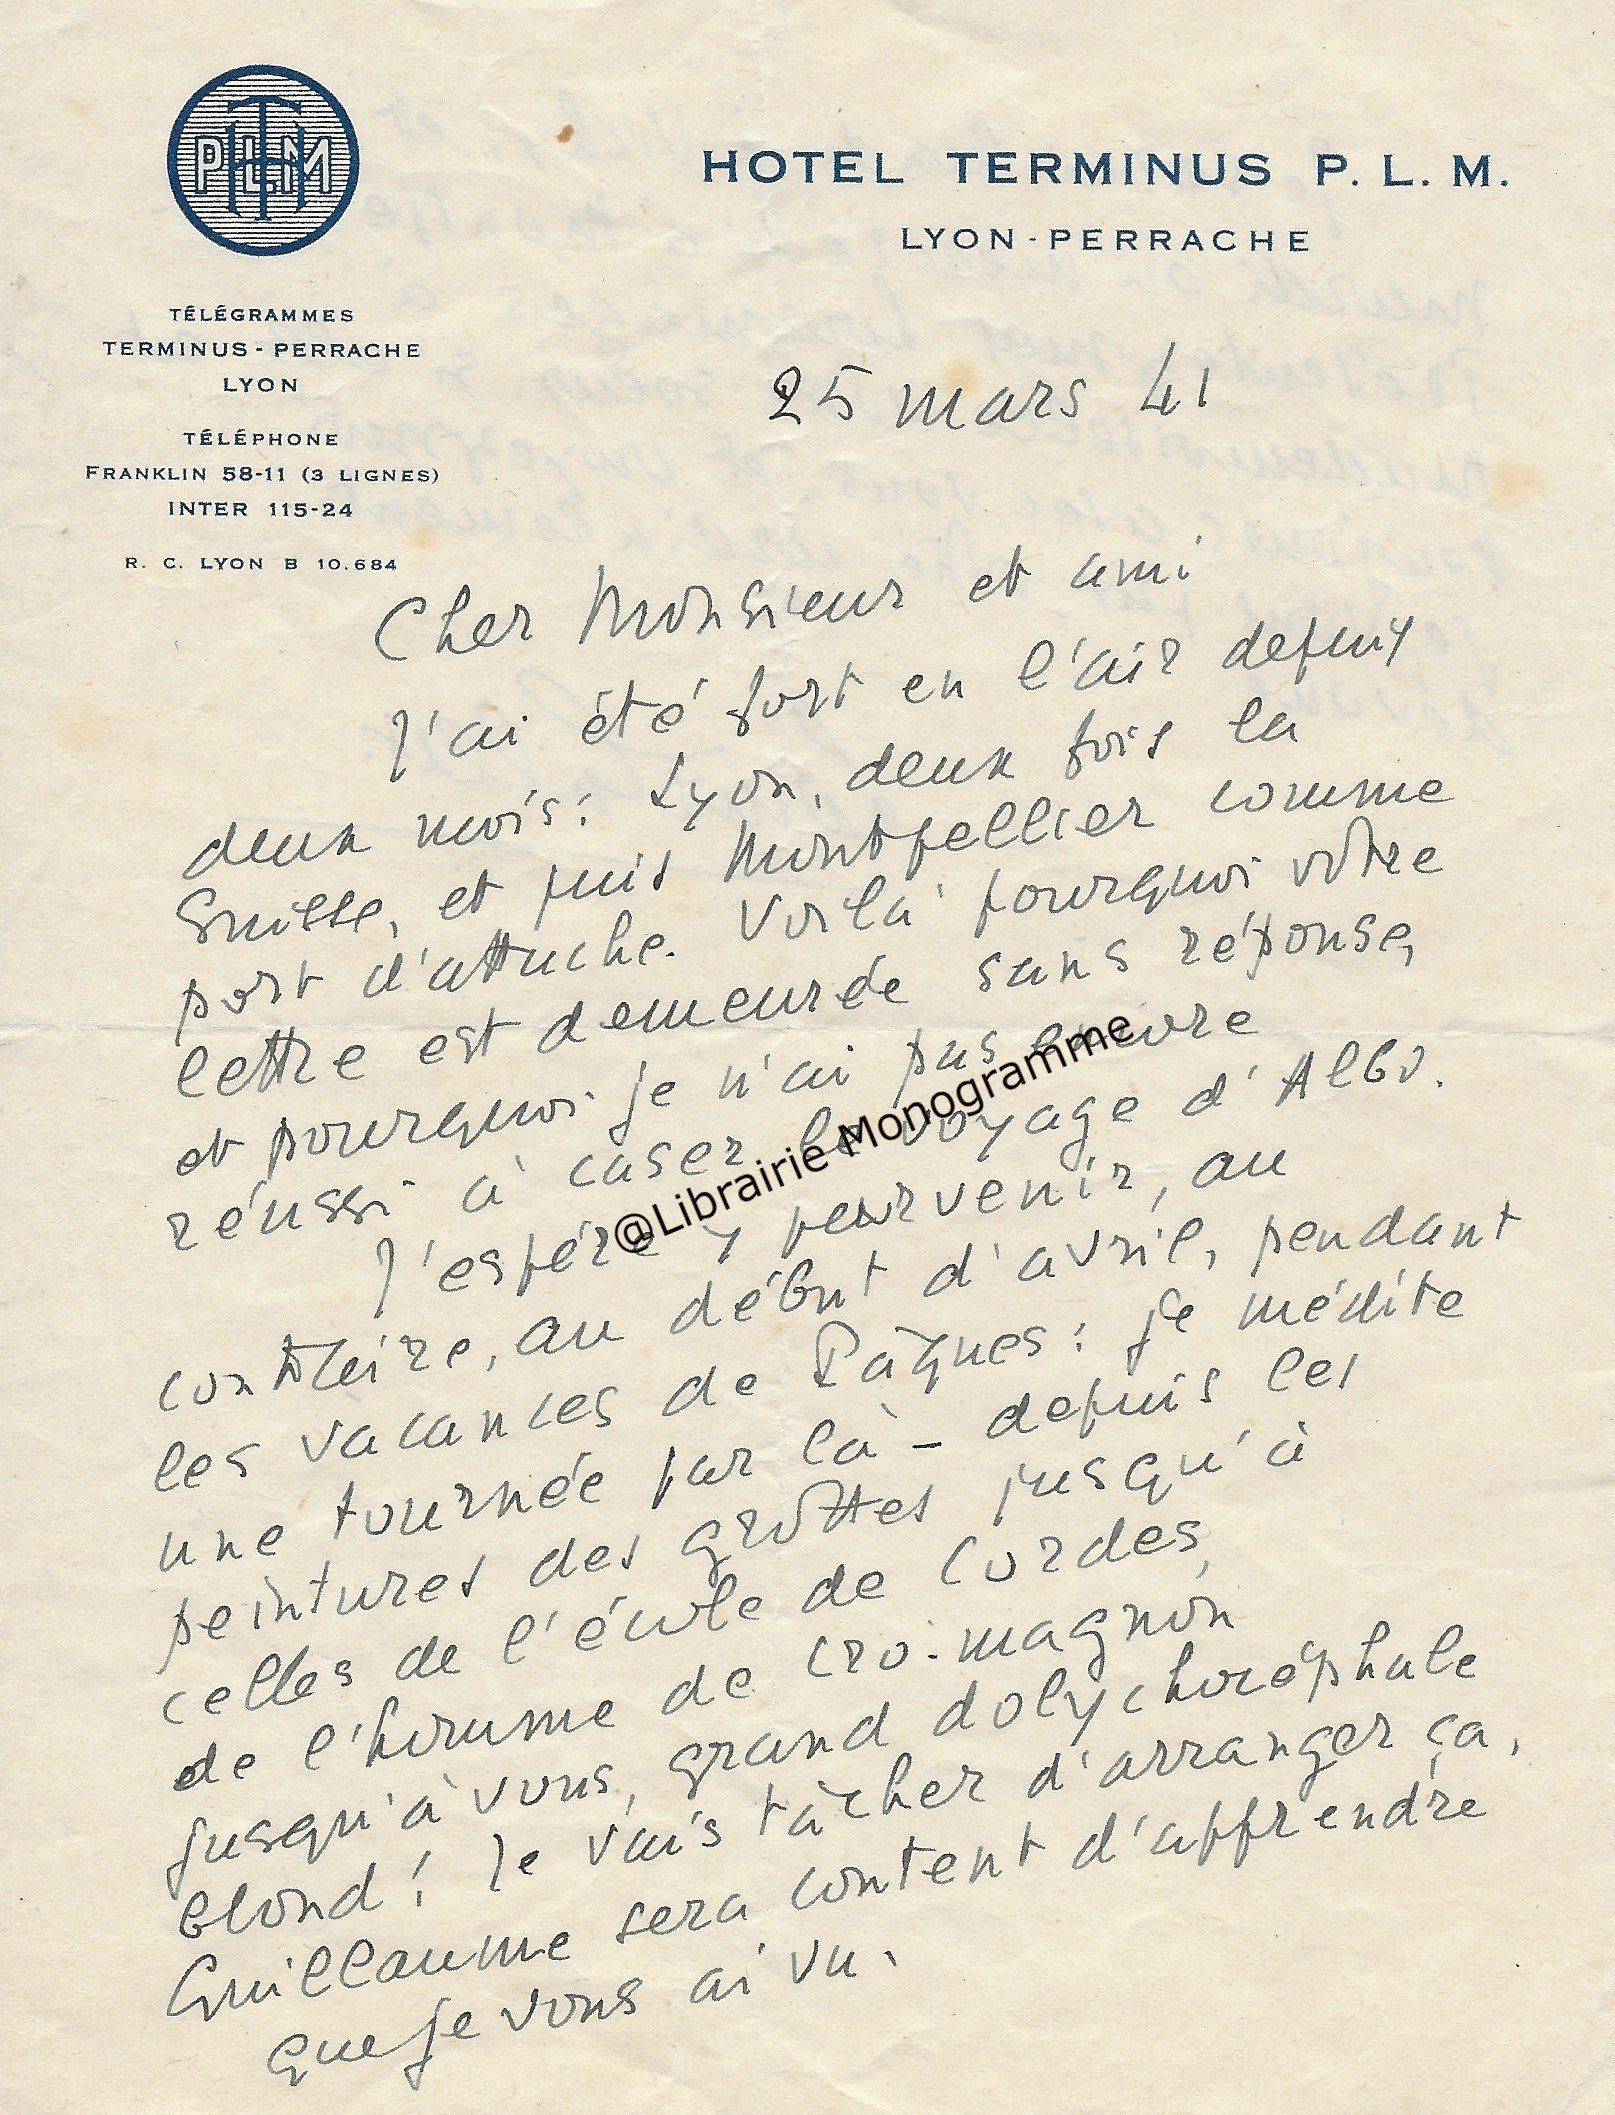 PLM
HOTEL TERMINUS P. L. M.
LYON-PERRACHE
TÉLÉGRAMMES
TERMINUS - PERRACHE
LYON
TÉLÉPHONE
FRANKLIN 58-11 (3 LIGNES)
INTER 115-24
R. C. LYON B 10.684
25 mars 41
Cher Monsieur et ami
J'ai été fort en l'air depuis
deux mois : Lyon, deux fois la
Suisse, et puis Montpellier comme
port d'attache. Voilà pourquoi votre
lettre est demeurée sans réponse,
et pourquoi je n'ai pas encore
réussi à caser le voyage d'Albi.
J'espère y parvenir, au
contraire, au début d'avril, pendant
les vacances de Pâques : je médite
une tournée par là – depuis les
peintures des grottes jusqu'à
celles de l'école de Cordes,
de l'homme de cro-magnon
jusqu'à vous, grand dolychocéphale
blond ! Je vais tâcher d'arranger ça.
Guillaume sera content d'apprendre
que je vous ai vu.
@Librairie Monogramme